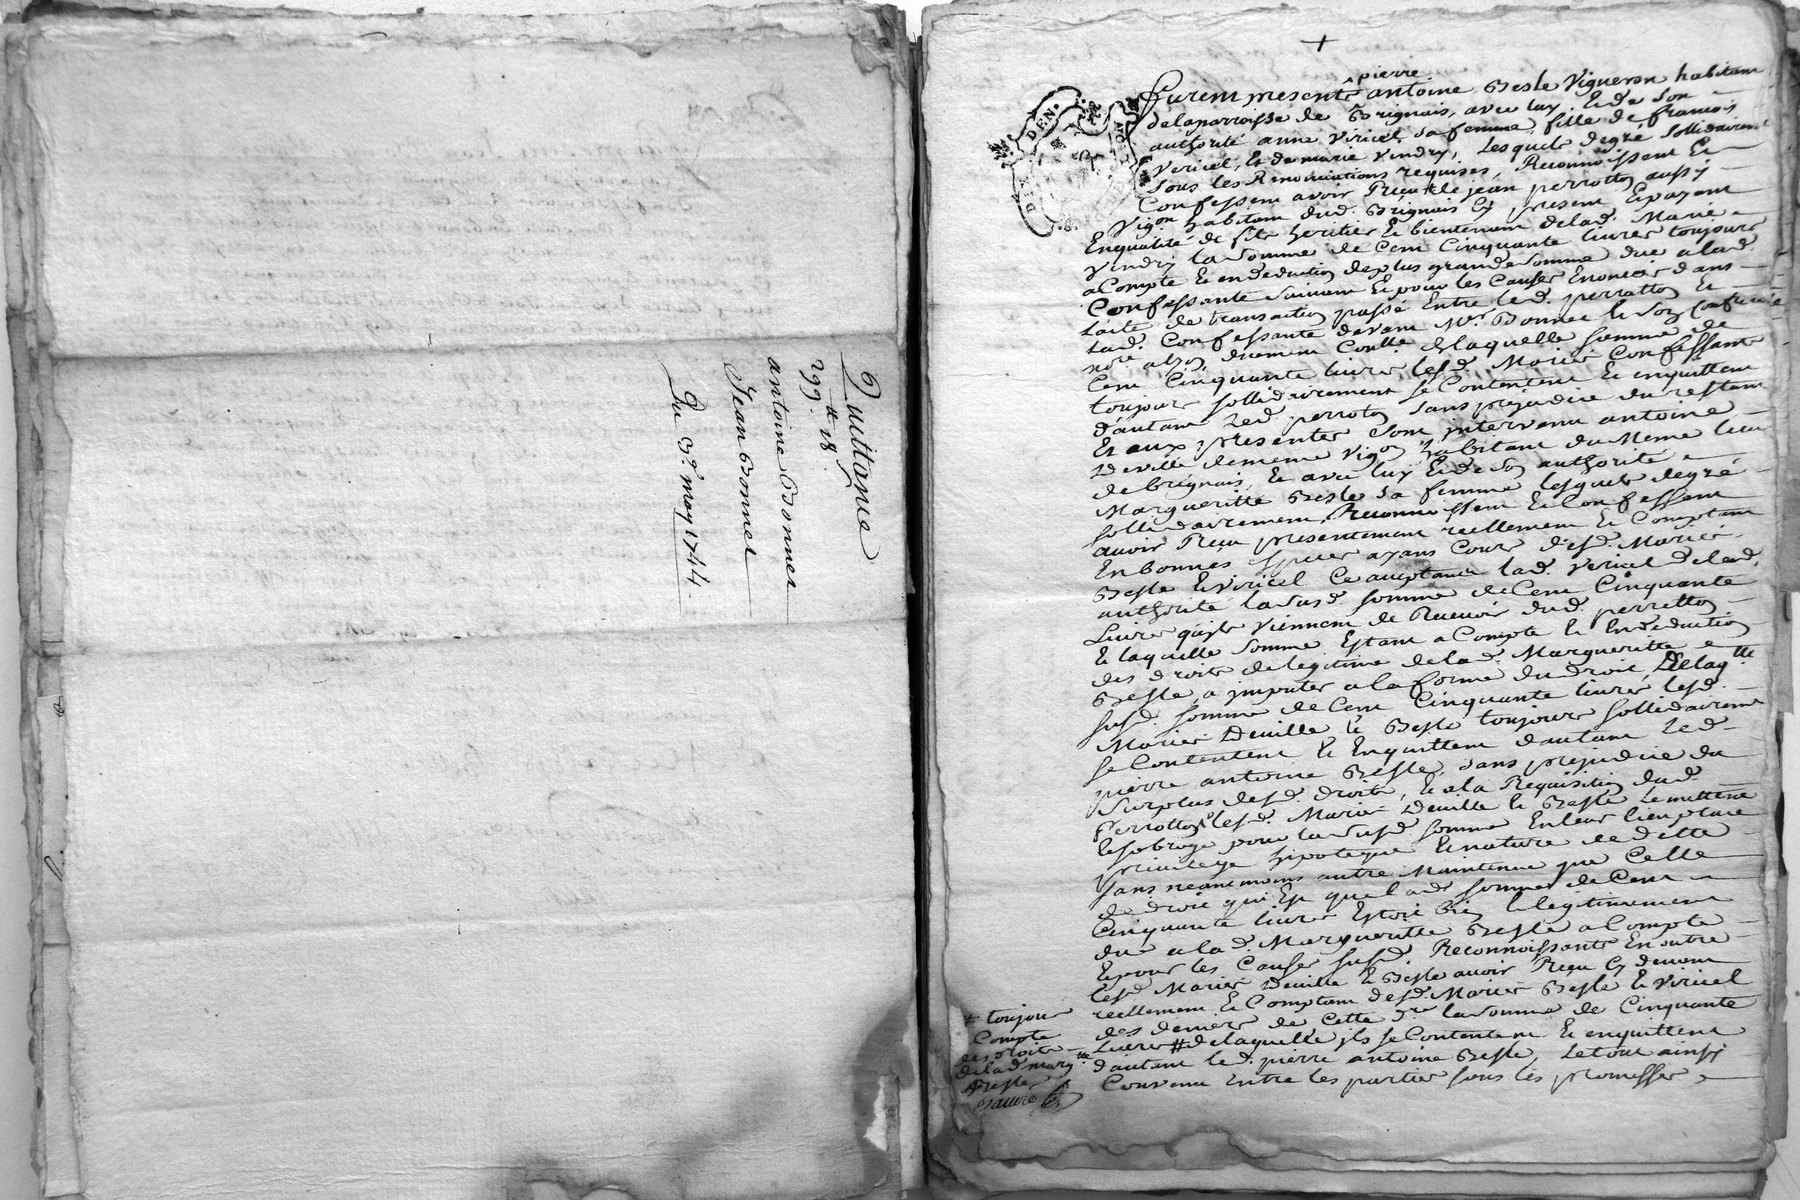 Quittance
299.ᵗᵗ 18.
antoine Bonnet
Jean Bonnet
Du 3.ᵉ may 1744.
+
pierre
furent presents antoine Beste Vigneron habitant
de la parroisse de Brignais, avec luy Et de Son
authorité anne Viricel sa femme, fille de françois
Vericel, Et de marie Vindry, Lesquels de gré Sollidairement
Sous les Renonciations requises, Reconnoissent Et
Confessent avoir Reçu de jean perrotton aussy
Vig.on habitant dud. Brignais Cy present Et payant
En qualité de fils heritier Et bientenant de lad. Marie
Vindry la Somme de Cent Cinquante livres toujours
a Compte Et en deduction de plus grande Somme due a lad.
Confessante Suivant Et pour les Causes Enoncés dans
l'acte de transaction passé Entre led. perrotton Et
lad. Confessante devant M.r Bonnet le Son Confrere
no.re a Lyon de laquelle Somme de
Cent Cinquante livres lesd. Mariés Confessants
toujours Sollidairement Se Contentent Et en quittent
d'autant led. perroton Sans prejudice du restant
Et aux presentes Sont intervenu antoine
Deville de meme Vigon habitant du Meme lieu
de Brignais, Et avec luy Et de Son authorité
Margueritte Beste Sa femme lesquels de gré
Sollidairement, Reconnoissent Et Confessent
avoir Reçu presentement reellement Et Comptant
En bonnes Especes ayans Cours desd. Mariés
Beste Et Viricel Ce acceptant lad. Vericel de lad.
authorité la Susd. Somme de Cent Cinquante
Livres qu'ils Viennent de Recevoir dud. perrotton
Et laquelle Somme Estant a Compte Et En deduction
des droits de legitime de lad. Margueritte
Beste, a imputer a la forme du droit, De laq.lle
Susd. Somme de Cent Cinquante livres lesd.
Mariés Deville Et Beste toujours Sollidairement
Se Contentent Et En quittent d'autant led.
pierre antoine Beste, Sans prejudice du
Surplus desd. droits, Et a la Requisition dud.
Perrotton lesd. Mariés Deville Et Beste le mettent
Et Subroge pour la Susd. Somme En leur lieu place
privilege hipoteque Et nature de dette
Sans neantmoins autre Maintenue que Celle
de droit qui Est que lad. Somme de Cent
Cinquante livres Estoit bien Et legitimement
due a lad. Margueritte Beste a Compte
Et pour les Causes Susd. Reconnoissants En outre
lesd. Mariés Deville Et Beste avoir Reçu Cy devant
reellement Et Comptant desd. Mariés Beste Et Viricel
des deniers de Cette la Somme de Cinquante
Livres # de laquelle ils Se Contentent Et en quittent
d'autant led. pierre antoine Beste, Le tout ainsy
Convenu Entre les parties Sous les promesses
# toujour
Compte
des droits
de lad. marg.tte
Beste